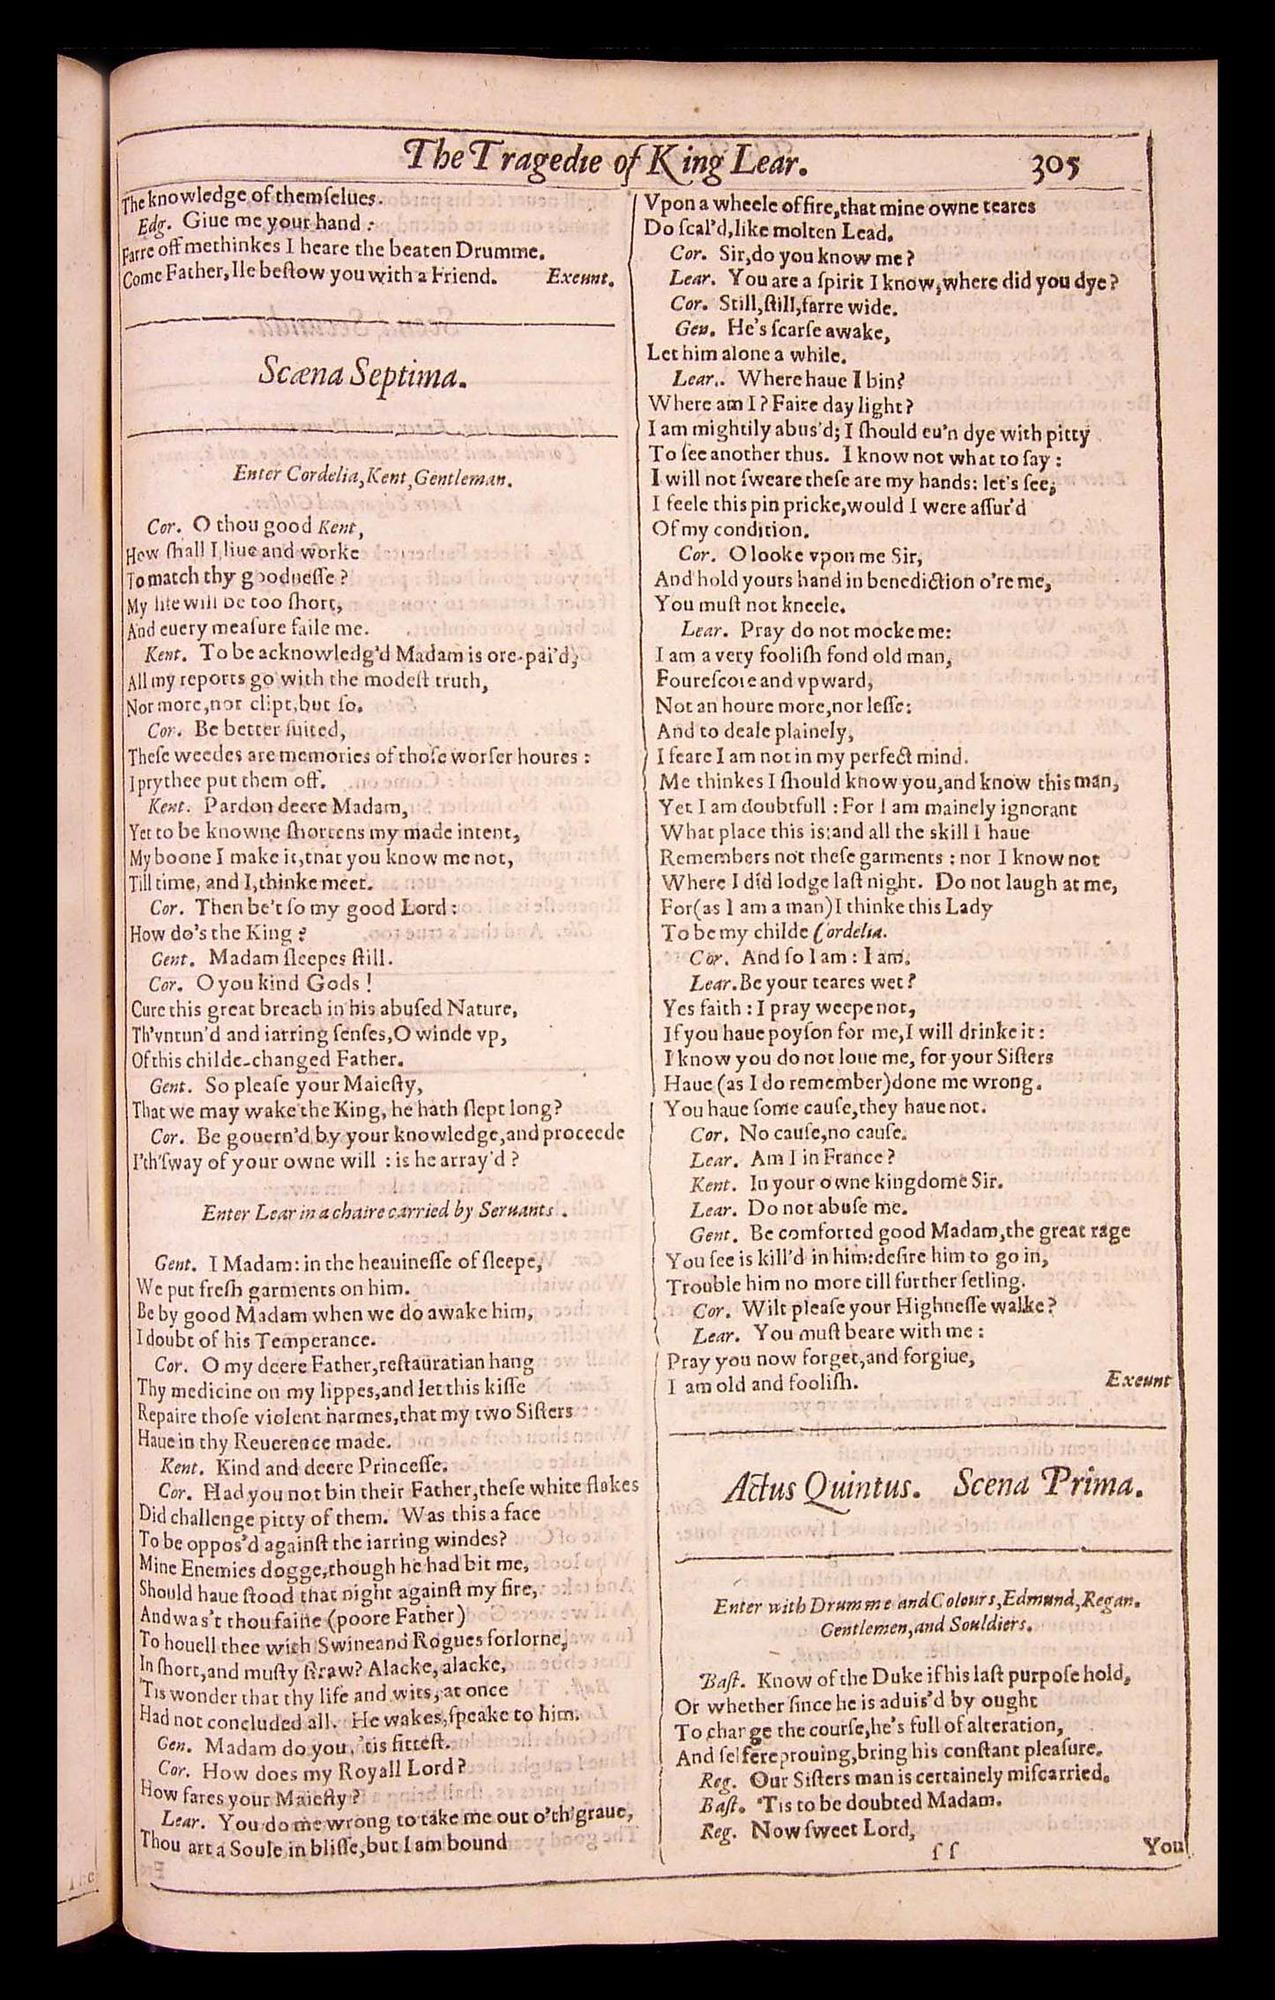 The Tragedie of King Lear. 305
The knowledge of themſelues.
Edg. Giue me your hand :
Farre off methinkes I heare the beaten Drumme.
Come Father, Ile beſtow you with a Friend. Exeunt.
Scæna Septima.
Enter Cordelia, Kent, Gentleman.
Cor. O thou good Kent,
How ſhall I liue and worke
To match thy goodneſſe ?
My life will be too ſhort,
And euery meaſure faile me.
Kent. To be acknowledg'd Madam is ore-pai'd,
All my reports go with the modeſt truth,
Nor more, nor clipt, but ſo.
Cor. Be better ſuited,
Theſe weedes are memories of thoſe worſer houres :
I prythee put them off.
Kent. Pardon deere Madam,
Yet to be knowne ſhortens my made intent,
My boone I make it, that you know me not,
Till time, and I, thinke meet.
Cor. Then be't ſo my good Lord :
How do's the King ?
Gent. Madam ſleepes ſtill.
Cor. O you kind Gods !
Cure this great breach in his abuſed Nature,
Th'vntun'd and iarring ſenſes, O winde vp,
Of this childe-changed Father.
Gent. So pleaſe your Maieſty,
That we may wake the King, he hath ſlept long?
Cor. Be gouern'd by your knowledge, and proceede
I'th'ſway of your owne will : is he array'd ?
Enter Lear in a chaire carried by Seruants .
Gent. I Madam: in the heauineſſe of ſleepe,
We put freſh garments on him.
Be by good Madam when we do awake him,
I doubt of his Temperance.
Cor. O my deere Father, reſtauratian hang
Thy medicine on my lippes, and let this kiſſe
Repaire thoſe violent harmes, that my two Siſters
Haue in thy Reuerence made.
Kent. Kind and deere Princeſſe.
Cor. Had you not bin their Father, theſe white flakes
Did challenge pitty of them. Was this a face
To be oppos'd againſt the iarring windes?
Mine Enemies dogge, though he had bit me,
Should haue ſtood that night againſt my fire,
And was't thou faine (poore Father)
To houell thee with Swine and Rogues forlorne,
In ſhort, and muſty ſtraw? Alacke, alacke,
'Tis wonder that thy life and wits, at once
Had not concluded all. He wakes, ſpeake to him.
Gen. Madam do you, 'tis fitteſt.
Cor. How does my Royall Lord?
How fares your Maieſty ?
Lear. You do me wrong to take me out o'th'graue,
Thou art a Soule in bliſſe, but I am bound
Vpon a wheele of fire, that mine owne teares
Do ſcal'd, like molten Lead.
Cor. Sir, do you know me ?
Lear. You are a ſpirit I know, where did you dye?
Cor. Still, ſtill, farre wide.
Gen. He's ſcarſe awake,
Let him alone a while.
Lear. Where haue I bin?
Where am I? Faire day light?
I am mightily abus'd; I ſhould eu'n dye with pitty
To ſee another thus. I know not what to ſay :
I will not ſweare theſe are my hands: let's ſee,
I feele this pin pricke, would I were aſſur'd
Of my condition.
Cor. O looke vpon me Sir,
And hold yours hand in benediction o're me,
You muſt not kneele.
Lear. Pray do not mocke me:
I am a very fooliſh fond old man,
Foureſcore and vpward,
Not an houre more, nor leſſe:
And to deale plainely,
I feare I am not in my perfect mind.
Me thinkes I ſhould know you, and know this man,
Yet I am doubtfull : For I am mainely ignorant
What place this is: and all the skill I haue
Remembers not theſe garments : nor I know not
Where I did lodge laſt night. Do not laugh at me,
For (as I am a man) I thinke this Lady
To be my childe Cordelia.
Cor. And ſo I am : I am.
Lear. Be your teares wet?
Yes faith : I pray weepe not,
If you haue poyſon for me, I will drinke it :
I know you do not loue me, for your Siſters
Haue (as I do remember) done me wrong.
You haue ſome cauſe, they haue not.
Cor. No cauſe, no cauſe.
Lear. Am I in France ?
Kent. In your owne kingdome Sir.
Lear. Do not abuſe me.
Gent. Be comforted good Madam, the great rage
You ſee is kill'd in him: deſire him to go in,
Trouble him no more till further ſetling.
Cor. Wilt pleaſe your Highneſſe walke?
Lear. You muſt beare with me :
Pray you now forget, and forgiue,
I am old and fooliſh. Exeunt
Actus Quintus. Scena Prima.
Enter with Drumme and Colours, Edmund, Regan.
Gentlemen, and Souldiers.
Baſt. Know of the Duke if his laſt purpoſe hold,
Or whether ſince he is aduis'd by ought
To change the courſe, he's full of alteration,
And ſelfereprouing, bring his conſtant pleaſure.
Reg. Our Siſters man is certainely miſcarried.
Baſt. 'Tis to be doubted Madam.
Reg. Now ſweet Lord,
ſſ You